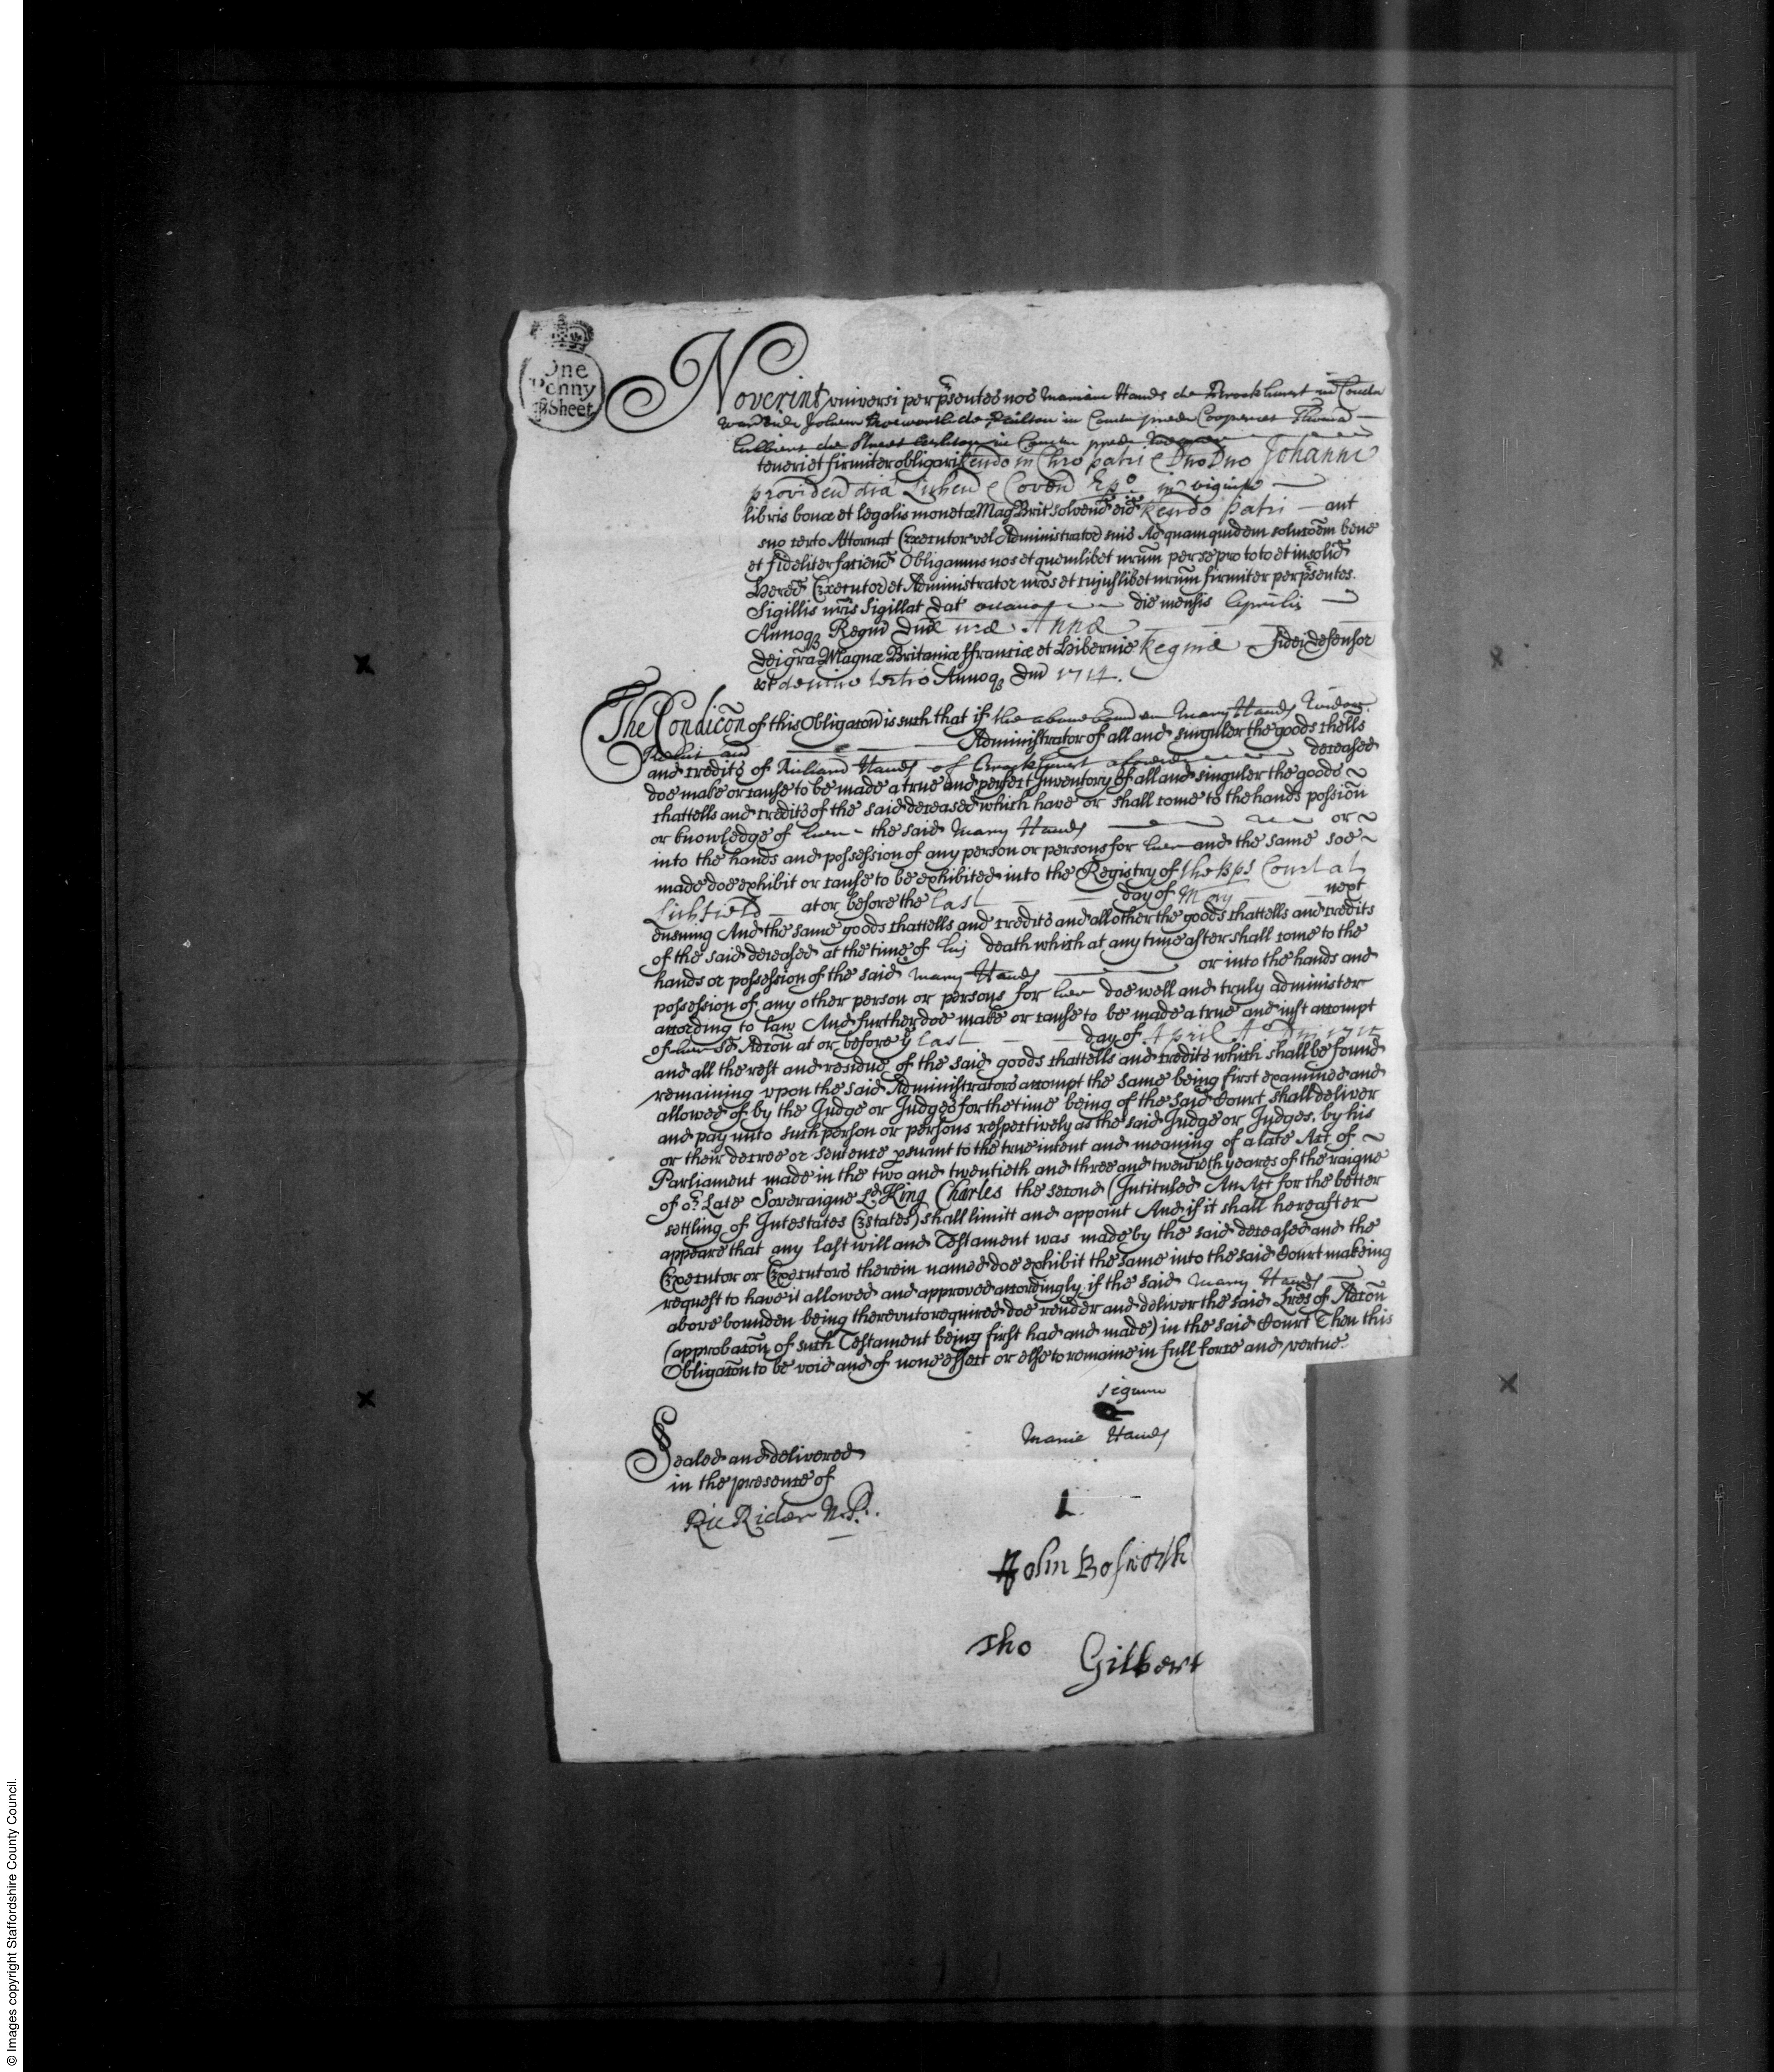 One
Penny
pr Sheet
Noverint universi per p̄sentes nos Mariam Hands de Brockhurst in Com
War Johem de in Com Thomā
de Street in Com
teneri et firmiter obligari Rendo in Chro patri & Dno Dno Johanni
providen diā Lichen & Coven Ep̄o in viginti
libris bonæ et legalis monetæ Mag Brit solvend eid Rendo Patri — aut
suo certo Attornat Executor vel Administrator suis Ad quam quidem soluc̄oem bene
et fideliter faciend Obligamus nos et quemlibet nrūm per se pro toto et in solid
Hered Executor et Administrator nrōs et cujuslibet nrūm firmiter per p̄sentes.
Sigillis nrīs Sigillat Dat octavo die mensis Aprilis
Annoq Regni Dnæ nræ Annæ
Dei grā Magnæ Britaniæ ffranciæ et Hiberniæ Reginæ Fidei defensor
&c decimo tertio Annoq Dni 1714.
The Condic̄on of this Obligac̄on is such that if the above bounden Mary Hands Widow
Relict and Administrator of all and singuler the goods chells
and credits of Richard Hands of Brockhurst aforesd deceased
doe make or cause to be made a true and perfect Inventory of all and singuler the goods
chattells and credits of the said deceased which have or shall come to the hands possion
or knowledge of her the said Mary Hands or
into the hands and possession of any person or persons for her and the same soe
made doe exhibit or cause to be exhibited into the Registry of the Bps Court at
Lichfield at or before the last day of May next
ensuing And the same goods chattells and credits and all other the goods chattells and credits
of the said deceased at the time of his death which at any time after shall come to the
hands or possession of the said Mary Hands or into the hands and
possession of any other person or persons for her doe well and truly administer
according to law And further doe make or cause to be made a true and just accompt
of her sd Adcon at or before ye last day of April Ao Dni 1715
and all the rest and residue of the said goods chattells and credits which shall be found
remaining upon the said Administrators accompt the same being first examined and
allowed of by the Judge or Judges for the time being of the said Court shall deliver
and pay unto such person or persons respectively as the said Judge or Judges, by his
or their decree or sentence psuant to the true intent and meaning of a late Act of
Parliament made in the two and twentieth and three and twentieth yeares of the raigne
of or Late Soveraigne Ld King Charles the second (Intituled An Act for the better
settling of Intestates Estates) shall limitt and appoint And if it shall hereafter
appeare that any last will and Testament was made by the said deceased and the
Executor or Executors therein named doe exhibit the same into the said Court makeing
request to have it allowed and approved accordingly if the said Mary Hands
above bounden being thereunto required doe render and deliver the said Lres of Adcon
(approbacon of such Testament being first had and made) in the said Court Then this
Obligacon to be void and of none effect or else to remaine in full force and vertue.
Signum
Marie Hands
Sealed and delivered
in the presence of
Ric Rider N.P.
John Bosworth
Tho Gilbert
© Images copyright Staffordshire County Council.